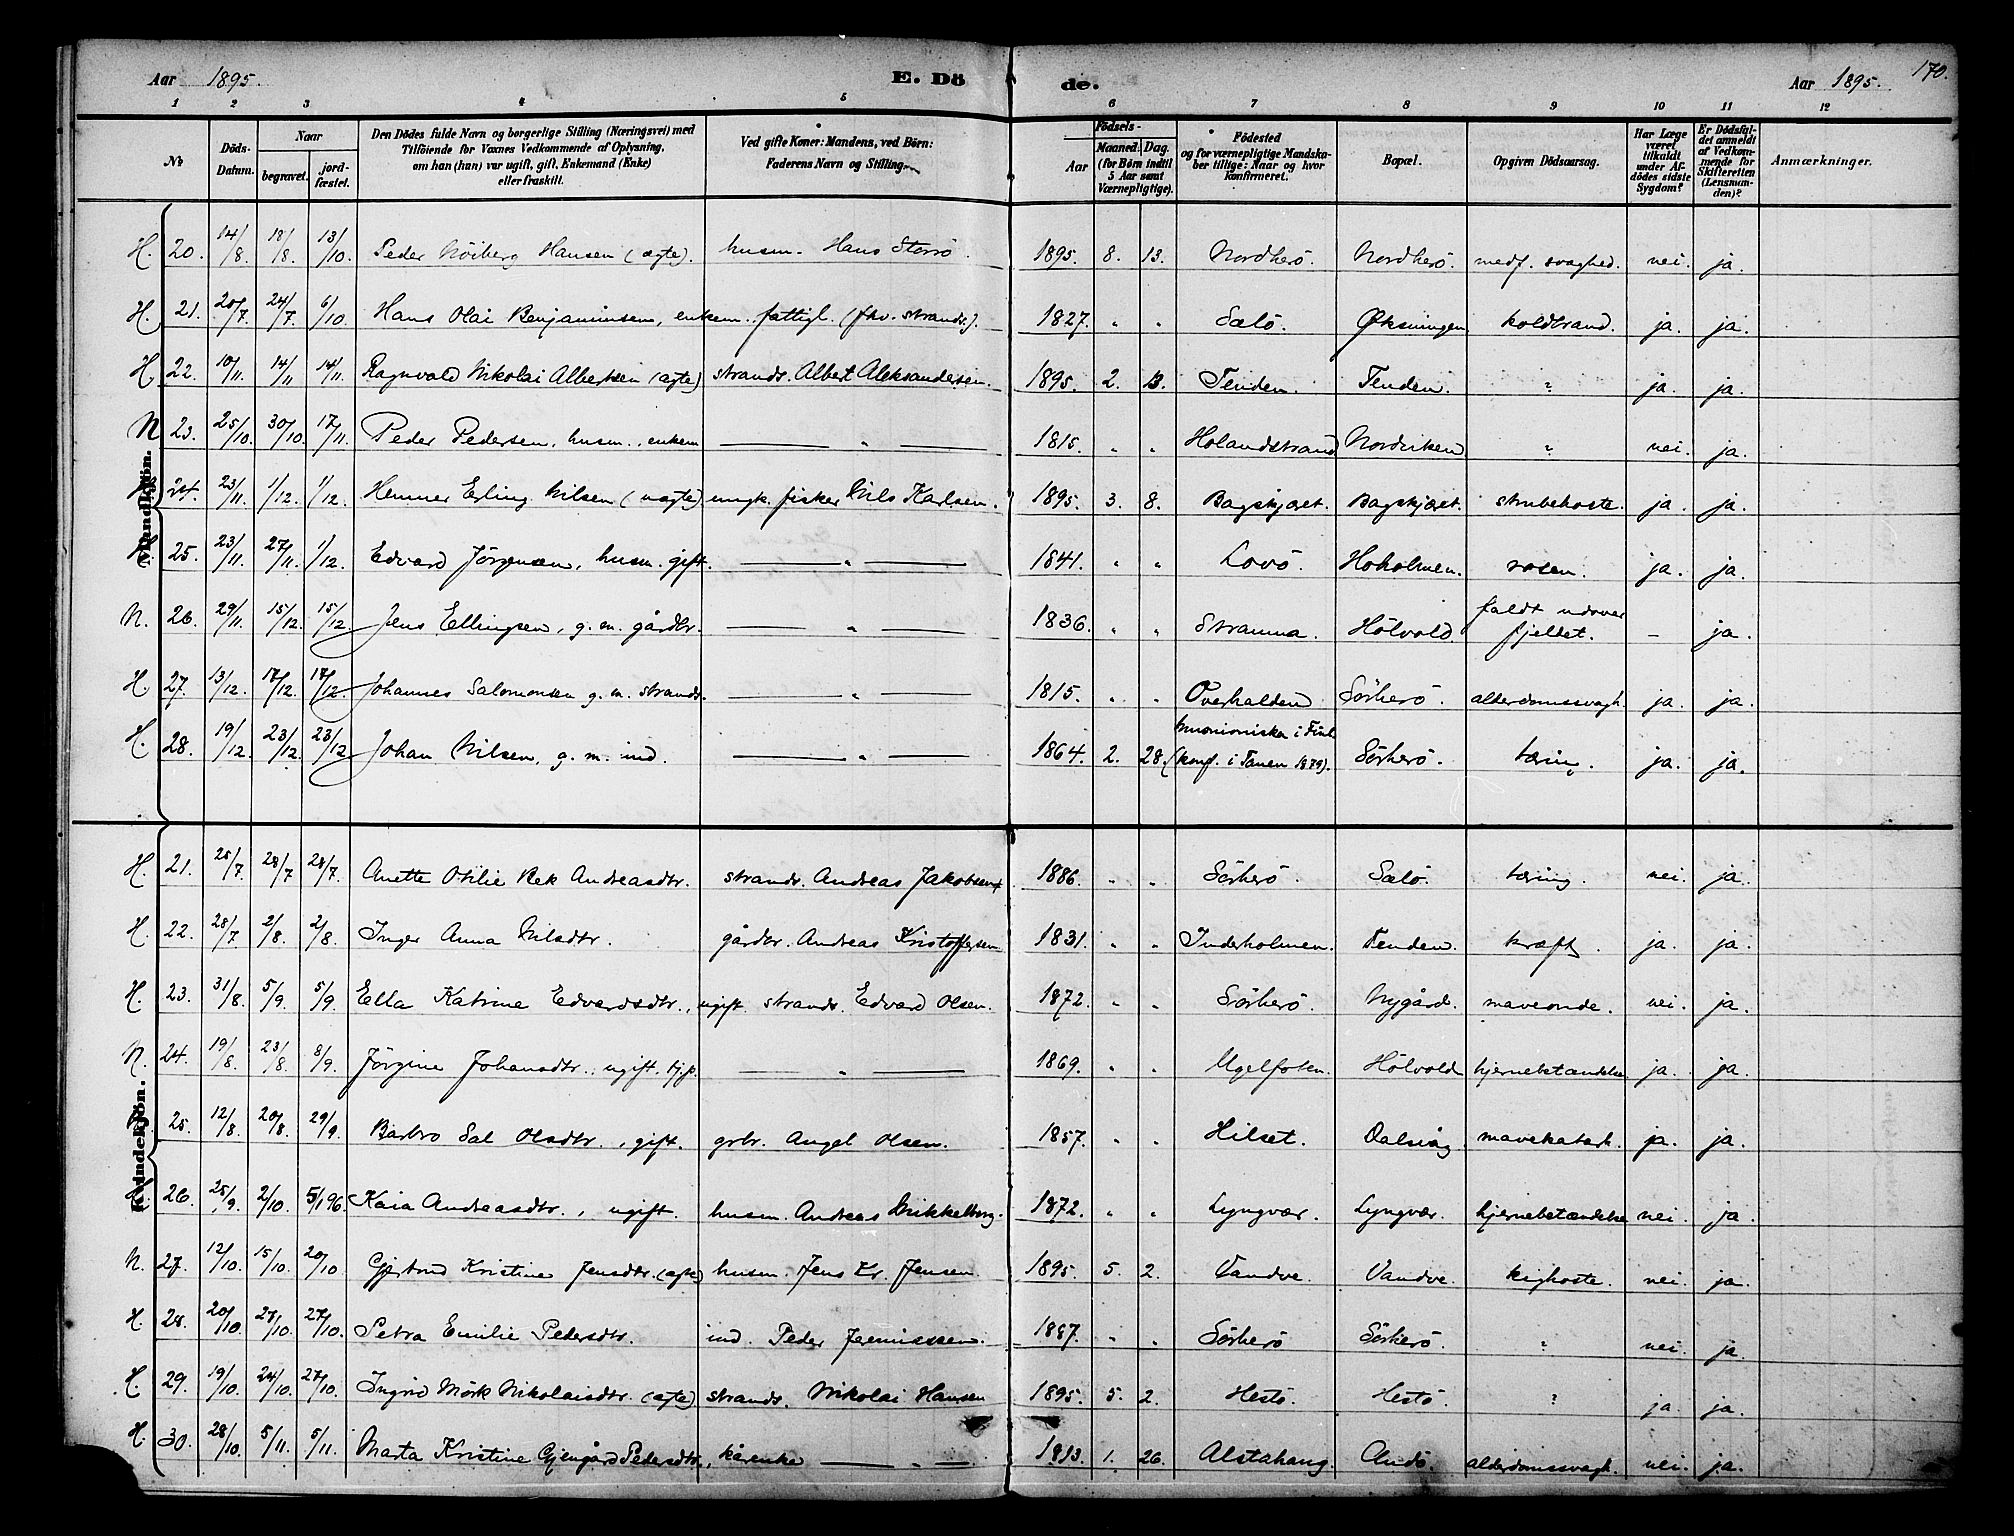 Aar 1895. E. Dö de. Aar 1895. 170.
1 2 3 4 5 6 7 8 9 10 11 12
No Döds-Datum. Naar begravet. jord-fæstet. Den Dödes fulde Navn og borgerlige Stilling (Næringsvei) med Tilföiende for Voxnes Vedkommende af Oplysning, om han (hun) var ugift, gift, Enkemand (Enke) eller fraskilt. Ved gifte Koner: Mandens, ved Börn: Faderens Navn og Stilling. Födsels- Aar Maaned. Dag. (for Börn indtil 5 Aar samt Værnepligtige). Födested og for værnepligtige Mandskaber tillige: Naar og hvor konfirmeret. Bopæl. Opgiven Dödsaarsag. Har Læge været tilkaldt under Afdödes sidste Sygdom? Er Dödsfaldet anmeldt af Vedkommende for Skifteretten (Lensmanden)? Anmærkninger.
Mandkjön.
H. 20. 14/8 18/8 13/10 Peder Nöiberg Hansen (ægte). husm. Hans Storrö. 1895. 8. 13. Nordherö. Nordherö. medf. svaghed. nei. ja.
H. 21. 20/7. 24/7. 6/10. Hans Olai Benjaminsen, enkem. fattigl. (fhv. strands.). 1827. " " Sælö. Øksningen koldbrand. ja. ja.
H. 22. 10/11. 14/11 14/11. Ragnvald Nikolai Albertsen (ægte) strands. Albert Aleksandersen. 1895. 2. 13. Tenden. Tenden. " ja. ja.
N 23. 25/10. 30/10. 17/11. Peder Pedersen, husm., enkem — " — 1815. " " Holandstrand Nordviken " nei. ja.
24. 23/11. 1/12. 1/12. Hemmer Erling Nilsen (uægte) ungk. fisker Nils Karlsen. 1895. 3. 8. Bagskjæret. Bagskjæret. strubehoste. ja. ja.
25. 23/11. 27/11. 1/12. Edvard Jörgensen, husm. gift. — " — 1841. " " Lovö. Hoholmen. rosen. ja. ja.
N. 26. 29/11. 15/12. 15/12. Jens Ellingsen, g. m. gårdbr. — " — 1836. " " Stramna. Hölvold. faldt udover fjeldet. — ja.
H. 27. 13/12. 17/12. 17/12. Johannes Salomonsen g. m. strands. — " — 1815. " " Overhalden Sörherö. alderdomssvagh. ja. ja.
H. 28. 19/12. 23/12. 23/12 Johan Nilsen, g. m. ind. — " — 1864. 2. 28. (konf. i Tanen 1879). Sörherö. tæring. ja. ja.
Kvindekjön.
H. 21. 25/7. 28/7 28/7. Anette Otilie Bek Andreasdtr. strands. Andreas Jakobsen 1886. " " Sörherö. Sælö. tæring. nei. ja.
H. 22. 28/7 2/8. 2/8. Inger Anna Nilsdtr. gårdbr. Andreas Kristoffersen 1831. " " Inderholmen. Tenden. kræft. ja. ja.
H. 23. 31/8. 5/9. 5/9. Ella Katrine Edvardsdtr., ugift. strands. Edvard Olsen. 1872. " " Sörherö Nygård. maveonde. nei. ja.
N. 24. 19/8. 23/8. 8/9. Jörgine Johansdtr., ugift, tj.p. — " — 1869. " " Ugelfoten. Hölvold hjernebetændelse ja. ja.
25. 12/8. 20/8. 29/9. Barbro Sal Olsdtr., gift. grbr. Angel Olsen. 1857. " " Hilset. Dalsvåg mavekatarh. ja. ja.
26. 25/9. 2/10. 5/1 96. Kaia Andreasdtr., ugift. husm. Andreas Mikkelborg. 1872. " " Lyngvær. Lyngvær. hjernebetændelse nei. ja.
N. 27. 12/10. 15/10. 20/10. Gjertrud Kristine Jensdtr. (ægte) husm. Jens Kr. Jensen 1895. 5. 2. Vandve. Vandve. kighoste. nei. ja.
H. 28. 20/10. 27/10. 27/10. Petra Emilie Pedersdtr. ind. Peder Jermiassen. 1887. " " Sörherö Sörherö " nei. ja.
H 29. 19/10. 24/10. 27/10. Ingrid Mörk Nikolaisdtr. (ægte) strands. Nikolai Hansen 1895. 5. 2. Hestö. Hestö. " ja. ja.
H. 30. 28/10. 5/11. 5/11. Marta Kristine Gjengård Pedersdtr., kårenke — " — 1813. 1. 26. Alstahaug. Andö. alderdomssvagh. nei. ja.